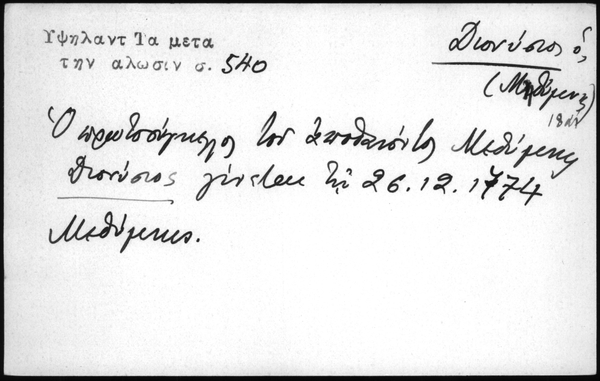 Υψηλαντ Τα μετα
την αλωσιν σ. 540
Διονύσιος ὁ,
(Μηθύμνης)
Ὁ πρωτοσύγκελλος τοῦ ἀποθανόντος Μηθύμνης
Διονύσιος γίνεται τῇ 26.12.1774
Μηθύμνης.